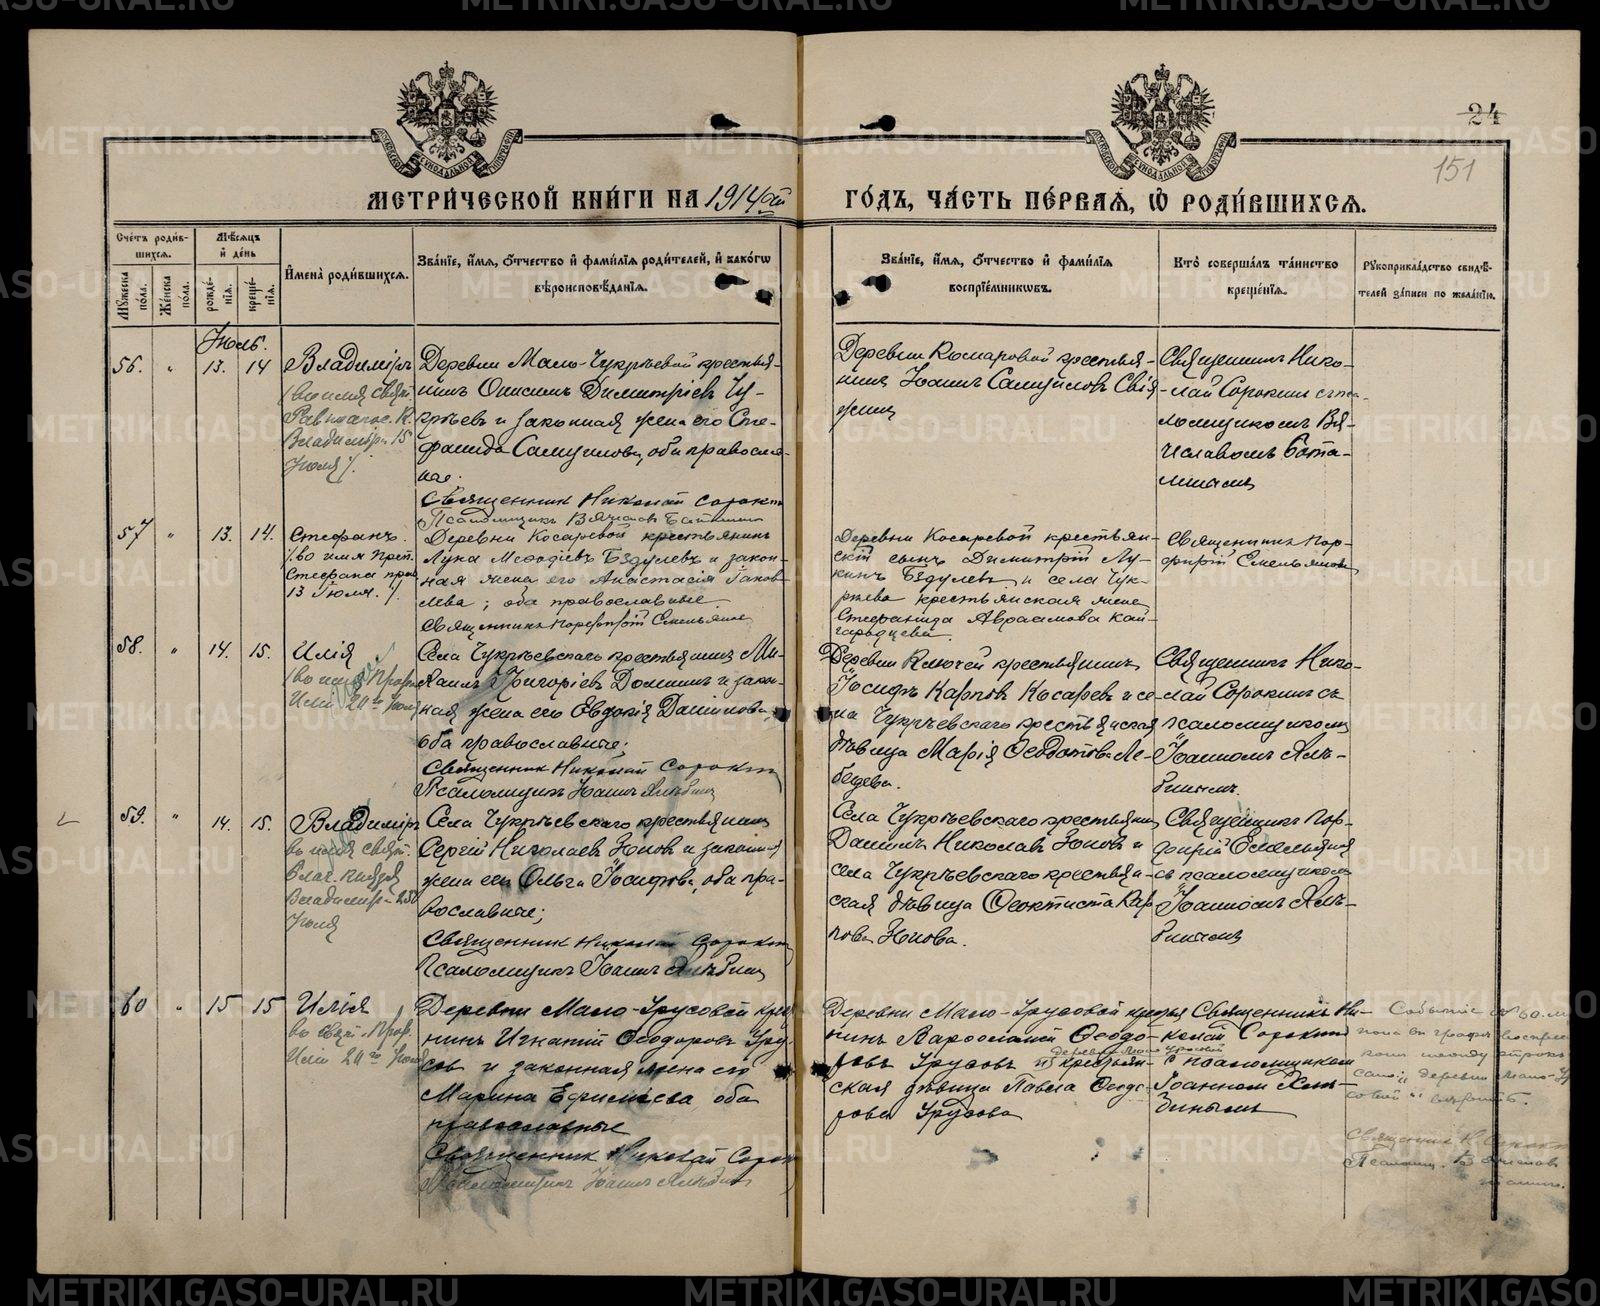 24
151
МЕТРИ́ЧЕСКОЙ КНИ́ГИ НА 1914ый ГО́ДЪ, ЧА́СТЬ ПЕ́РВАЯ, Ѡ РОДИ́ВШИХСЯ.
Сче́тъ роди́в-
шихся.
Мꙋ́жеска по́ла.
Же́нска по́ла.
Мѣ́сяцъ
и҆ де́нь
рожде́-
нїя.
креще́-
нїя.
И҆мена̀ роди́вшихся.
Зва́нїе, и҆́мя, ѻ҆́тчество и҆ фами́лїя роди́телей, и҆ како́гѡ
вѣроисповѣ́данїя.
Зва́нїе, и҆́мя, ѻ҆́тчество и҆ фами́лїя
воспрїе́мникѡвъ.
Кто̀ соверша́лъ та́инство
креще́нїя.
Рꙋкоприкла́дство свидѣ́-
телей за́писи по жела́нїю.
Іюль.
56.
"
13.
14
Владиміръ
Равноапос. К.
Владиміра 15
Іюля).
Деревни Мало-Чукрѣевой крестья-
нинъ Онисимъ Димитріевъ Чу-
крѣевъ и законная жена его Сте-
фанида Самуилова, оба православ-
ные.
Священник Николай Сорокин
Деревни Комаровой крестья-
нинъ Іоаннъ Самуиловъ
Священникъ Нико-
лай Сорокинъ съ пса-
ломщикомъ Вя-
чеславомъ
57
"
13.
14.
Стефанъ.
(во имя преп.
Стефана
13 Іюля.)
Деревни Косаревой крестьянинъ
Лука Меѳодіевъ Бздулевъ и закон-
ная жена его Анастасія Іаков-
лева; оба православные.
Священникъ Порфирій Емельянов
Деревни Косаревой крестьян-
скій сынъ Димитрій Лу-
кинъ Бздулевъ и села Чук-
рѣева крестьянская жена
Стефанида Авраамова Кай-
гародцева.
Священникъ Пор-
фирій Емельяновъ
58.
"
14.
15.
Илія
(во имя Прор.
Иліи 20го Іюля
Села Чукрѣевскаго крестьянинъ Ми-
хаилъ Григоріевъ Доминъ и закон-
ная жена его Евдокія Даніилова,
оба православные;
Священник Николай Сорокин
Псаломщикъ Іоаннъ Ялъбинъ
Деревни Ключей крестьянинъ
Іосифъ Карповъ Косаревъ и се-
ла Чукрѣевскаго крестьянская
дѣвица Марія Ѳедотова Ле-
бедева.
Священникъ Нико-
лай Сорокинъ съ
псаломщикомъ
Іоанномъ Ялъ-
бинымъ.
59.
"
14.
15.
Владиміръ
во имя свят.
Благ. князя
Владиміра
Іюля
Села Чукрѣевскаго крестьянинъ
Сергій Николаевъ Юновъ и законная
жена его Ольга Іосифова, оба пра-
вославные;
Священник Николай Сорокин
Псаломщикъ Іоаннъ Ялъбинъ
Села Чукрѣевскаго крестьянинъ
Даніилъ Николаевъ Юновъ и
села Чукрѣевскаго крестьян-
ская дѣвица Ѳеоктиста Кар-
пова Юнова.
Священникъ Пор-
фирій Емельяновъ
съ псаломщикомъ
Іоанномъ Ялъ-
бинымъ
60
"
15
15
Илія
во свят. Прор.
Иліи 20го Іюля
Деревни Мало-Трусовой крес
нинъ Игнатій Ѳеодоровъ Тру-
сов и законная жена его
Марина Ефиміева оба
православные
Священник Николай Сорокин
Псаломщикъ Іоаннъ Ялъбинъ
Деревни Мало-Трусовой крестья
нинъ Ѳеодо-
ровъ Трусовъ и крестьян-
деревни Мало-Трусовой
ская дѣвица Павла Ѳеодо-
рова Трусова
Священникъ Ни-
колай Сорокин
с псаломщиком
Іоанном Ялъ-
биным
Событіе № 60.
деревни Мало-Тру
совой" вѣрить.
Священник Н. Сорокин